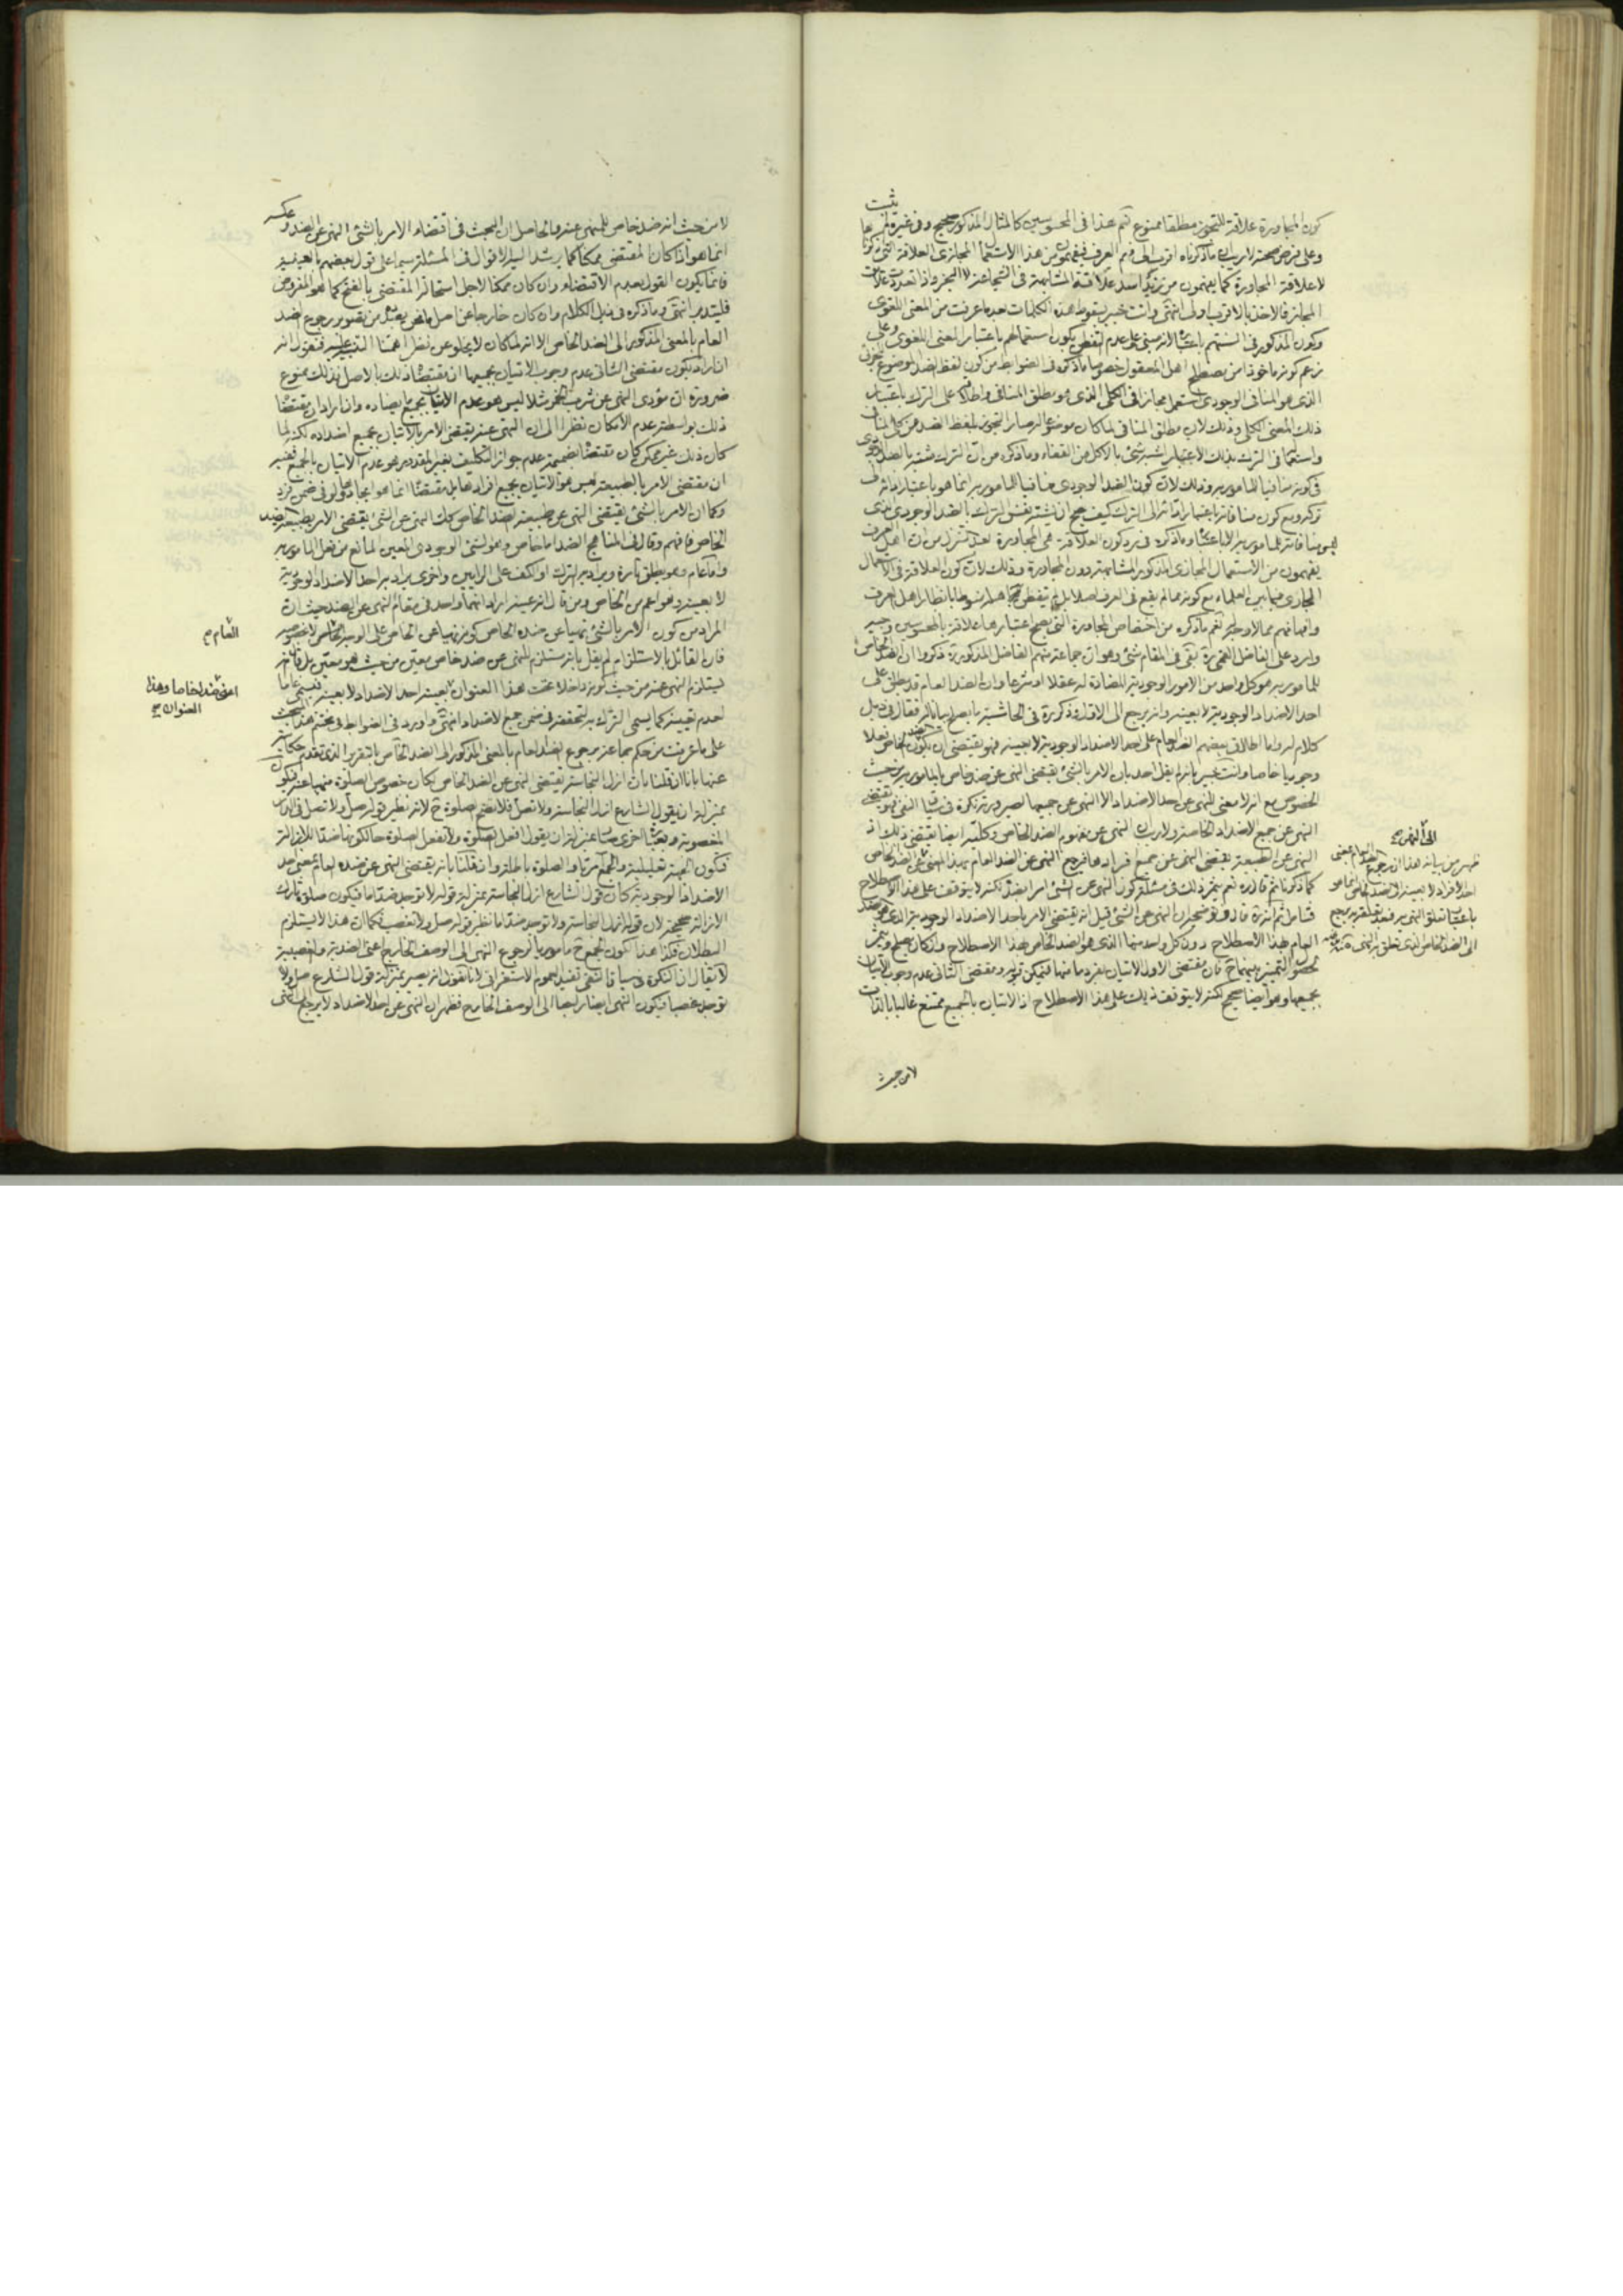 كون المجاورة علاقة للتجوز مطلقا ممنوع نعم هذا فى المحسوسين كالمثال المذكور صحيح وفى غيره لم يثبت
وعلى فرض صحته لا ريب ان ما ذكرناه اقرب الى فهم العرف فيفهمون من هذا الاستعمال المجازى العلاقة التى ذكرنا
لا علاقة المجاورة كما يفهمون من زيد اسد علاقة المشابهة فى الشجاعة لا البخر واذا تعددت علاقات
المجاز فالاخذ بالاقرب اولى انتهى وانت خبير بسقوط هذه الكلمات بعد ما عرفت من المعنى اللغوى
وكون المذكور فى السنتهم باعتبار انه مبنى على عدم التفطن بكون استعمالهم باعتبار المعنى اللغوى وعلى
زعم كونه ماخوذا من مصطلح اهل المعقول خصوصا ما ذكره فى الضوابط من كون لفظ الضد الموضوع
الذى هو المنافى الوجودى استعمل مجازا فى الكلى الذى هو مطلق المنافى واطلاقه على الترك باعتبار
ذلك المعنى الكلى وذلك لان مطلق المنافى لما كان موضوعا له صار التجوز بلفظ الضد عن كل المنافى
واستعماله فى الترك بذلك الاعتبار اشبه شئ بالاكل من القفاء وما ذكره من ان الترك مشتبه بالضد الوجودى
فى كونه منافيا للمامور به وذلك لان كون الضد الوجودى منافيا للمامور به انما هو باعتبار
تركه ومع كون منافاته باعتبار الى الترك كيف يصح ان يشتبه نفس الترك بالضد الوجودى الذى
ليس منافاته للمامور به الا باعتباره وما ذكره فى رد كون العلاقة هى المجاورة من ان اهل العرف
يفهمون من الاستعمال المجازى المذكور المشابهة دون المجاورة وذلك لان كون العلاقة فى الاستعمال
المجازى فيما بين العلماء مع كونه مما لم يقع فى العرف اصلا منوطا بانظار اهل العرف
وافهامهم مما لا وجه له نعم ما ذكره من اختصاص المجاورة التى يصح اعتبارها علاقة بالمحسوسين وجيه
وارد على الفاضل القمى ره بقى فى المقام شئ وهو ان جماعة منهم الفاضل المذكور ره ذكروا ان الضد الخاص
للمامور به هو كل واحد من الامور الوجودية المضادة له عقلا او شرعا وان الضد العام قد يطلق على
احد الاضداد الوجودية لا بعينه وانه يرجع الى الاول وذكر ره فى الحاشية ما يصلح بيانا له فقال فى ذيل
كلام له واما اطلاق بعضهم الضد العام على احد الاضداد الوجودية لا بعينه فهو يقتضى ان يكون الضد الخاص فعلا
وجوديا خاصا وانت خبير بانه لم يقل احد بان الامر بالشئ يقتضى النهى عن ضد خاص بالمامور به من حيث
الخصوص مع انه لا معنى للنهى عن احد الاضداد الا النهى عن جميعها لصيرورته نكرة فى سياق النفى فهو يقتضى
النهى عن جميع الاضداد الخاصة ولا ريب ان النهى عن مفهوم الضد الخاص وكليته ايضا يقتضى ذلك اذ
النهى عن الطبيعة يقتضى النهى عن جميع افرادها فيرجع النهى عن الضد العام بهذا المعنى الى الضد الخاص
كما ذكرنا ثم قال ره نعم يثمر ذلك فى مسئلة كون النهى عن الشئ امرا بضده لكنه لا يتوقف على هذا الاصطلاح
فتامل ثم انه ره قال وتوضيحه ان النهى عن الشئ قيل انه يقتضى الامر باحد الاضداد الوجودية الذى هو الضد
العام بهذا الاصطلاح دون كل واحد منها الذى هو الضد الخاص بهذا الاصطلاح وان كان يصح ويثمر
لحصول التمييز بينهما ح فان مقتضى الاول الاتيان بفرد ما منها فيمكن تركه ومقتضى الثانى عدم وجوب الاتيان
بجميعها وهو ايضا صحيح لكنه لا يتوقف ذلك على هذا الاصطلاح اذ الاتيان بالجميع ممتنع غالبا بالذات
الى النهى ص
ظهر من بيانه هذا ان رجوع العام بمعنى
احد الافراد لا بعينه الى الضد الخاص انما هو
باعتبار تعلق النهى به فبعد تعلقه به يرجع
الى الضد الخاص الذى تعلق به النهى منه
لا من حيث
لا من حيث انه ضد خاص للمنهى عنه والحاصل ان البحث فى اقتضاء الامر بالشئ النهى عن الضد وعكسه
انما هو اذا كان المقتضى ممكنا كما يرشد اليه الاقوال فى المسئلة سيما على قول بعضهم بالعينية
فانما يكون القول بعدم الاقتضاء وان كان ممكنا لا لاجل استحالة المقتضى بالفتح كما هو المفروض
فليتدبر انتهى وما ذكره فى ذيل الكلام وان كان خارجا عن اصل ما نحن بصدده من تصوير رجوع الضد
العام بالمعنى المذكور الى الضد الخاص الا انه لما كان لا يخلو عن نظر اهمنا التنبيه عليه فنقول انه
ان اراد بكون مقتضى الثانى عدم وجوب الاتيان بجميعها ان مقتضاه ذلك بالاصل فذلك ممنوع
ضرورة ان مؤدى النهى عن شرب الخمر مثلا ليس هو عدم الاتيان بجميع ما يضاده وان اراد ان مقتضاه
ذلك بواسطة عدم الامكان نظرا الى ان النهى عنه يقتضى الامر بالاتيان بجميع اضداده لكنه لما
كان ذلك غير ممكن كان مقتضاه بضميمة عدم جواز التكليف بغير المقدور هو عدم الاتيان بالجميع ففيه
ان مقتضى الامر بالطبيعة ليس هو الاتيان بجميع افرادها بل مقتضاه انما هو ايجادها ولو فى ضمن فرد
وكما ان الامر بالشئ يقتضى النهى عن طبيعة الضد الخاص كك النهى عن الشئ يقتضى الامر بطبيعة الضد
الخاص فافهم وقال فى المناهج الضد اما خاص وهو الشئ الوجودى المعين المانع من فعل المامور به
واما عام وهو يطلق تارة ويراد به الترك او الكف على الرايين واخرى يراد به احد الاضداد الوجودية
لا بعينه وهو اعم من الخاص ومن قال انه عينه اراد انهما واحد فى مقام النهى عن الضد حيث ان
المراد من كون الامر بالشئ نهيا عن ضده الخاص كونه نهيا عن الخاص على الوجه العام لا بخصوصه
فان القائل بالاستلزام لم يقل بانه مستلزم للنهى عن ضد خاص معين من حيث هو معين بل قال انه
يستلزم النهى عنه من حيث كونه داخلا تحت هذا العنوان يعنى احد الاضداد لا بعينه فيسمى عاما
لعدم تعيينه كما يسمى الترك به لتحققه فى ضمن جميع الاضداد انتهى واورد فى الضوابط فى مختتم هذا المبحث
على ما عرفت من حكم جماعة برجوع الضد العام بالمعنى المذكور الى الضد الخاص بالتقرير الذى تقدم حكايته
عنها بانا ان قلنا بان ازل النجاسة يقتضى النهى عن الضد الخاص لكان خصوص الصلوة منهيا عنه فيكون
بمنزلة ان يقول الشارع ازل النجاسة ولا تصل فلا تصح الصلوة ح لانه نظير قوله صل ولا تصل فى الدار
المغصوبة وبعبارة اخرى بمنزلة ان يقول افعل الصلوة ولا تفعل الصلوة حال كونها ضدا للازالة
فتكون الجهة تعليلية والصلوة باطلة وان قلنا بانه يقتضى النهى عن ضده العام بمعنى احد
الاضداد الوجودية كان قول الشارع ازل النجاسة بمنزلة قوله لا توجد ضدا ما فيكون صلوة تارك
الازالة صحيحة لان قوله ازل النجاسة ولا توجد ضدا ما نظير قوله صل ولا تغصب فكما ان هذا لا يستلزم
البطلان فكذا هذا لكون المجموع ح مامورا به لرجوع النهى الى الوصف الخارج اعنى الضدية والغصبية
لا يقال ان النكرة فى سياق النفى تفيد العموم الاستغراقى لانا نقول انه يصير بمنزلة قول الشارع صل ولا
توجد غصبا فيكون النهى ايضا راجعا الى الوصف الخارج فظهر ان النهى عن احد الاضداد لا يرجع الى النهى
العام ص
اعنى ضدا خاصا وهذا
العنوان ص